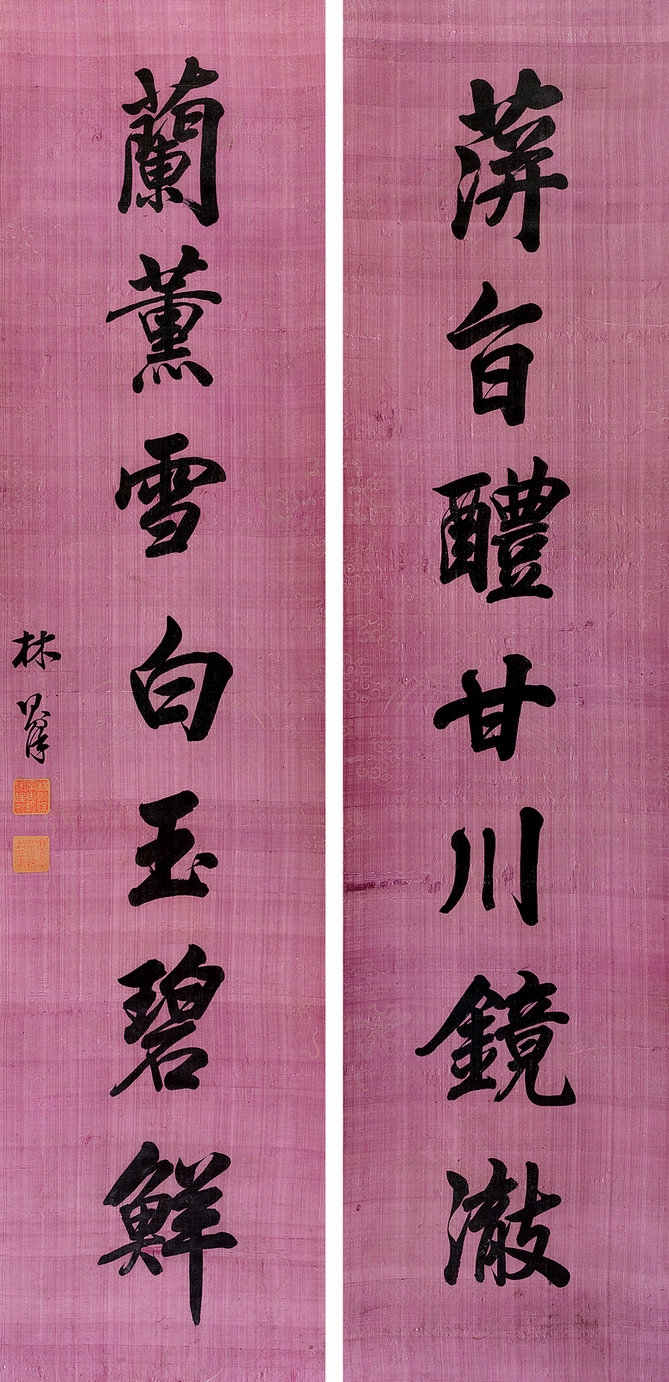 蓱旨醴甘川鏡澈
蘭薰雪白玉碧鮮
林